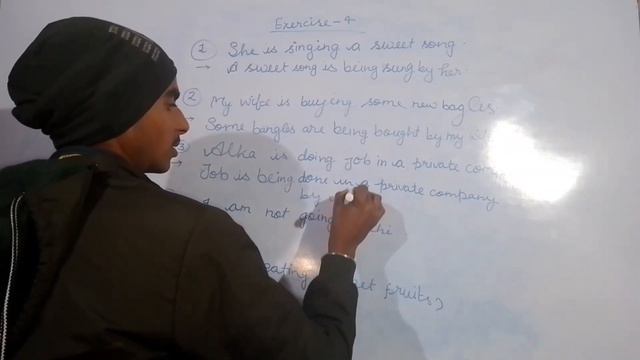 Exercise-4
① She is singing a sweet song.
→ A sweet song is being sung by her.
② My wife is buying some new bagles
Some bangles are being bought by my
③ Alka is doing Job in a private
→ Job is being done in a private company
by
I am not going
eating fruits,